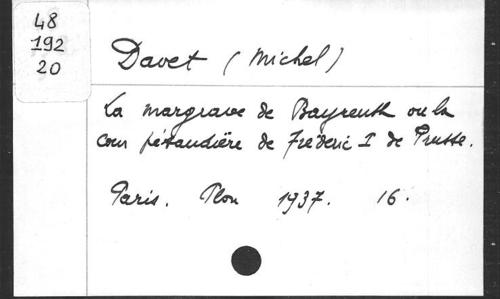 48
192
20
Davet (Michel)
La margrave de Bayreuth ou la
cour pétaudière de Frédéric I de Prusse.
Paris. Plon 1937. 16.